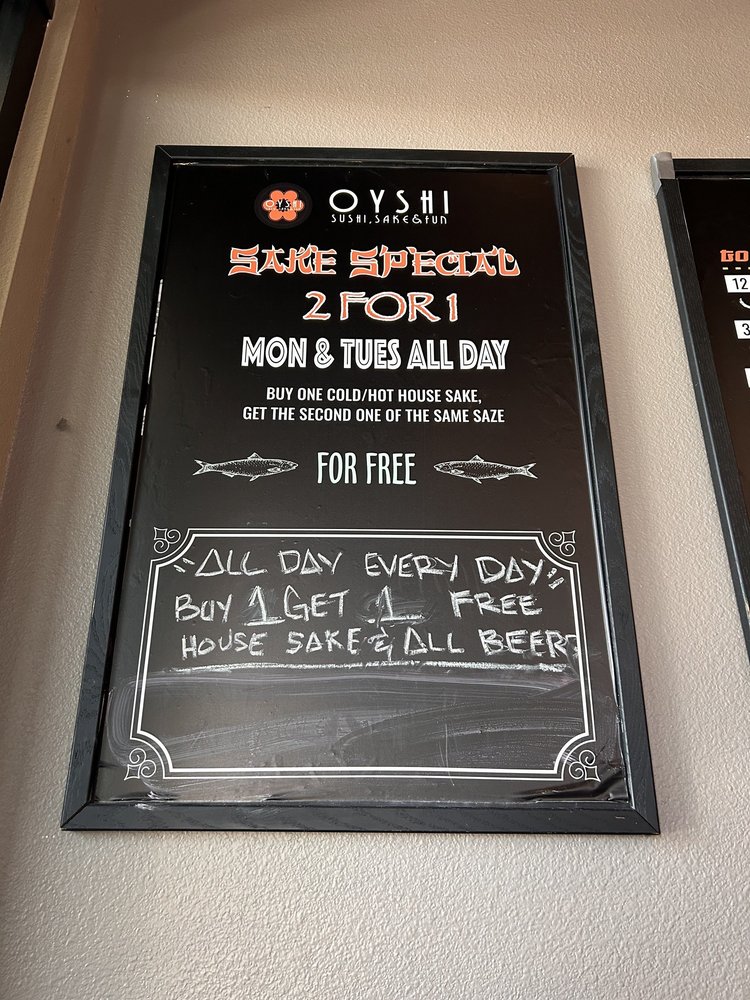 OYSHI
OYSHI
SUSHI, SAKE & FUN
SAKE SPECIAL
2 FOR 1
MON & TUES ALL DAY
BUY ONE COLD/HOT HOUSE SAKE,
GET THE SECOND ONE OF THE SAME SAZE
FOR FREE
"ALL DAY EVERY DAY"
BUY 1 GET 1 FREE
HOUSE SAKE & ALL BEER
12
3